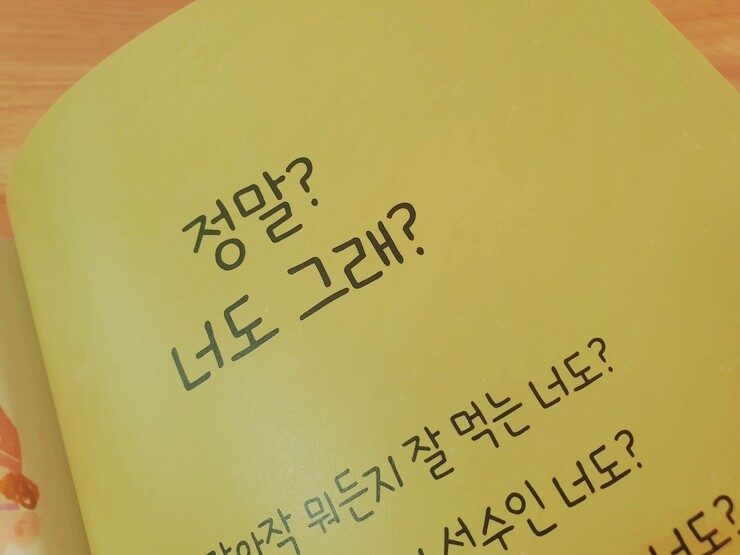 정말?
너도 그래?
뭐든지 잘 먹는 너도?
선수인 너도?
너도?